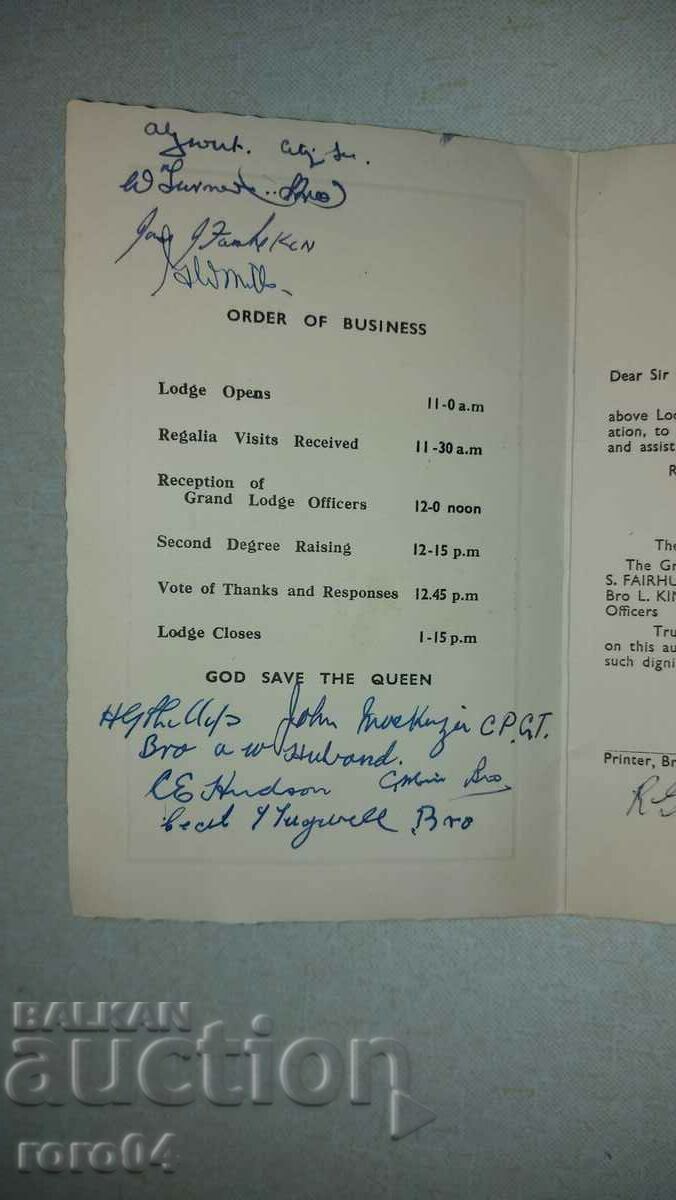 W Turner
ORDER OF BUSINESS
Lodge Opens 11-0 a.m
Regalia Visits Received 11-30 a.m
Reception of
Grand Lodge Officers 12-0 noon
Second Degree Raising 12-15 p.m
Vote of Thanks and Responses 12.45 p.m
Lodge Closes 1-15 p.m
GOD SAVE THE QUEEN
John MacKenzie C.P.G.T.
Bro a w Huband.
C E Hudson Bro
Cecil Tugwell Bro
Dear Sir
above Lo
ation, to
and assist
R
The
The Gr
S. FAIRHU
Bro L. KIN
Officers
Tru
on this au
such digni
Printer, Br
BALKAN
auction
roro04